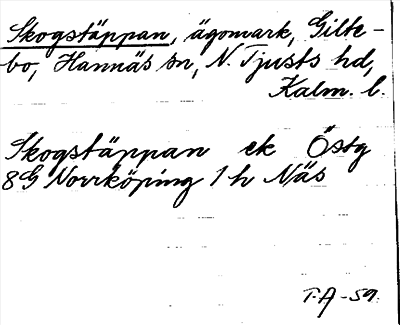 Skogstäppan, ägomark, Gilte-
bo, Hannäs sn, N. Tjusts hd,
Kalm. l.
Skogstäppan ek Östg
8G Norrköping 1h Näs
T.A-59.